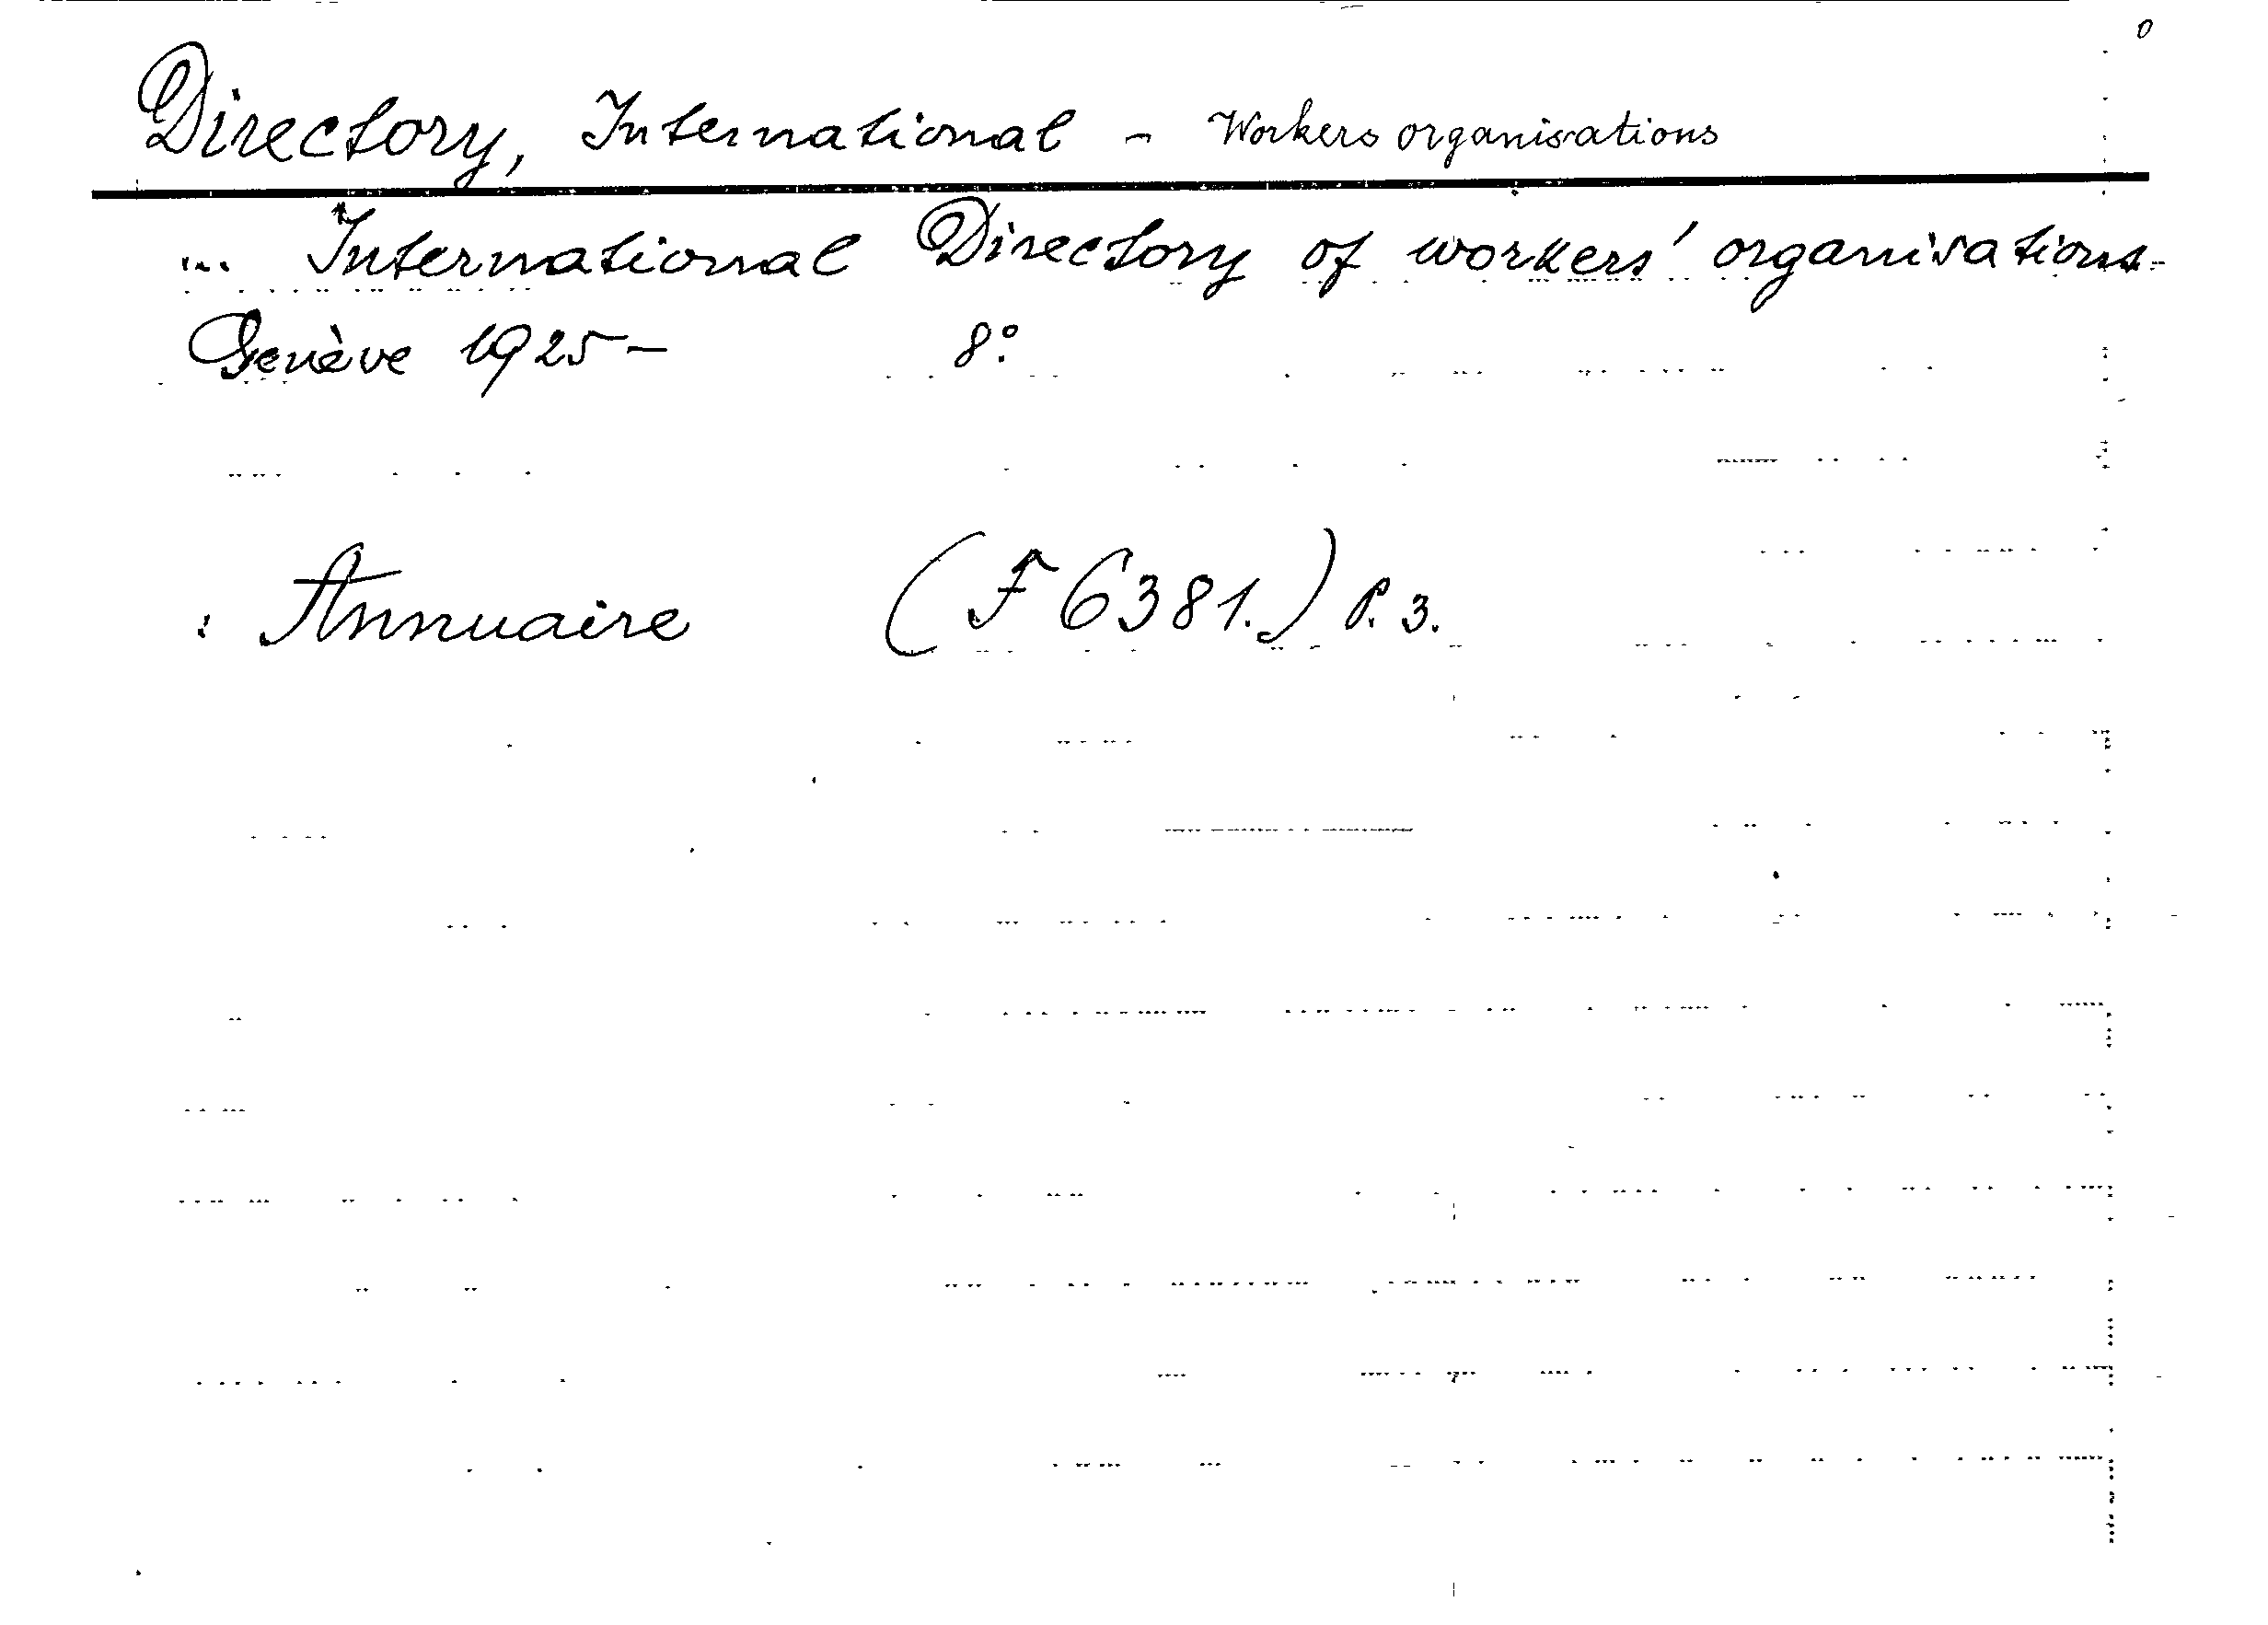 Directory, International - Workers organisations
... International Directory of workers' organisations-
Genève 1925- 8°.
: Annuaire (F 6381.) P. 3.